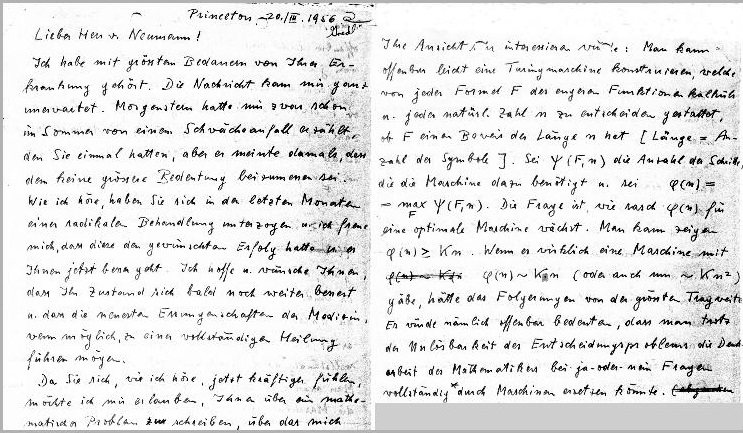 Princeton 20./III. 1956
Lieber Herr v. Neumann!
Ich habe mit grösstem Bedauern von Ihrer Er-
krankung gehört. Die Nachricht kam mir ganz
unerwartet. Morgenstern hatte mir zwar schon
im Sommer von einem Schwächeanfall erzählt,
den Sie einmal hatten, aber er meinte damals, dass
dem keine grössere Bedeutung beizumessen sei.
Wie ich höre, haben Sie sich in den letzten Monaten
einer radikalen Behandlung unterzogen u. ich freue
mich, dass diese den gewünschten Erfolg hatte u. es
Ihnen jetzt besser geht. Ich hoffe u. wünsche Ihnen,
dass Ihr Zustand sich bald noch weiter bessert
u. dass die neuesten Errungenschaften der Medizin,
wenn möglich, zu einer vollständigen Heilung
führen mögen.
Da Sie sich, wie ich höre, jetzt kräftiger fühlen,
möchte ich mir erlauben, Ihnen über ein mathe-
matisches Problem zu schreiben, über das mich
Ihre Ansicht sehr interessieren würde: Man kann
offenbar leicht eine Turingmaschine konstruieren, welche
von jeder Formel F des engeren Funktionenkalküls
u. jeder natürl. Zahl n zu entscheiden gestattet,
ob F einen Beweis der Länge n hat [Länge = An-
zahl der Symbole]. Sei Ψ(F,n) die Anzahl der Schritte,
die die Maschine dazu benötigt u. sei φ(n) =
= max_F Ψ(F,n). Die Frage ist, wie rasch φ(n) für
eine optimale Maschine wächst. Man kann zeigen
φ(n) ≥ Kn. Wenn es wirklich eine Maschine mit
φ(n) ∼ Kn (oder auch nur ∼ Kn²)
gäbe, hätte das Folgerungen von der grössten Tragweite.
Es würde nämlich offenbar bedeuten, dass man trotz
der Unlösbarkeit des Entscheidungsproblems die Denk-
arbeit des Mathematikers bei ja-oder-nein Fragen
vollständig* durch Maschinen ersetzen könnte.